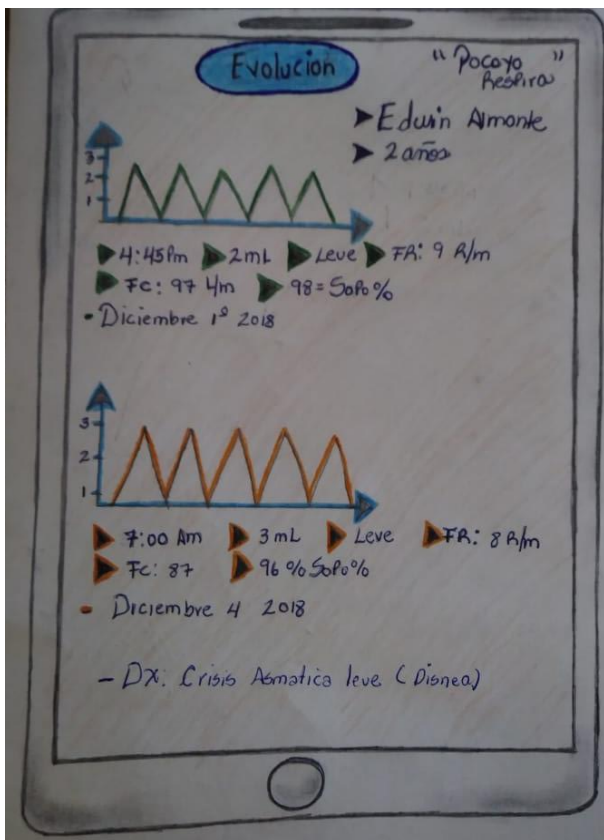 Evolucion
"Pocoyo"
Respira
Edwin Almonte
2 años
3
2
1
4:45 Pm 2mL Leve FR: 9 R/m
Fc: 97 L/m 98 = SaPo%
- Diciembre 1º 2018
3
2
1
7:00 Am 3mL Leve FR: 8 R/m
Fc: 87 96 % SaPo%
- Diciembre 4 2018
- Dx: Crisis Asmatica leve (Disnea)